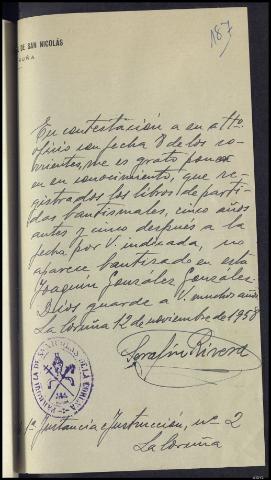 187
DE SAN NICOLÁS
CORUÑA
En contestación a su atto.
oficio con fecha 8 de los co-
rrientes, me es grato poner
en su conocimiento, que re-
gistrados los libros de parti-
das bautismales, cinco años
antes y cinco después a la
fecha por V. indicada, no
aparece bautizado en esta
Joaquín González González.
Dios guarde a V. muchos años
La Coruña 12 de noviembre de 1958
Serafín Rivera
PARROQUIA DE SAN NICOLAS DE LA CORUÑA
1ª Instancia e Instrucción, nº 2
La Coruña